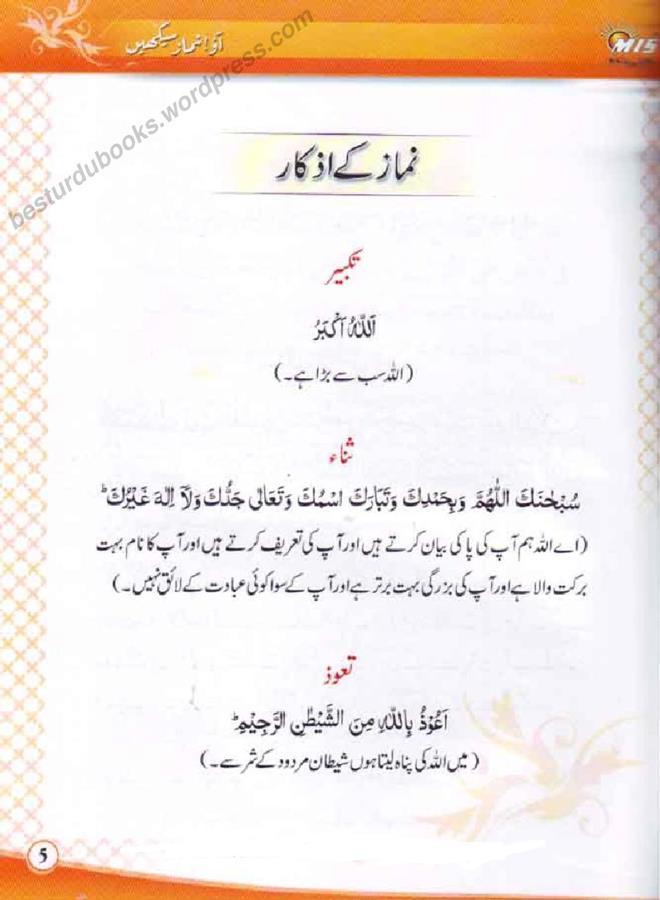 آؤ! نماز سیکھیں
MIS
besturdubooks.wordpress.com
نماز کے اذکار
تکبیر
اَللّٰهُ اَكْبَرُ
(اللہ سب سے بڑا ہے۔)
ثناء
سُبْحٰنَكَ اللّٰهُمَّ وَبِحَمْدِكَ وَتَبَارَكَ اسْمُكَ وَتَعَالٰى جَدُّكَ وَلَآ اِلٰهَ غَيْرُكَ ؕ
(اے اللہ ہم آپ کی پاکی بیان کرتے ہیں اور آپ کی تعریف کرتے ہیں اور آپ کا نام بہت
برکت والا ہے اور آپ کی بزرگی بہت برتر ہے اور آپ کے سوا کوئی عبادت کے لائق نہیں۔)
تعوذ
اَعُوْذُ بِاللّٰهِ مِنَ الشَّيْطٰنِ الرَّجِيْمِ ؕ
(میں اللہ کی پناہ لیتا ہوں شیطان مردود کے شر سے۔)
5